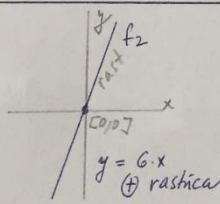 y
f2
rast
x
[0,0]
y = 6·x
⊕ rastica